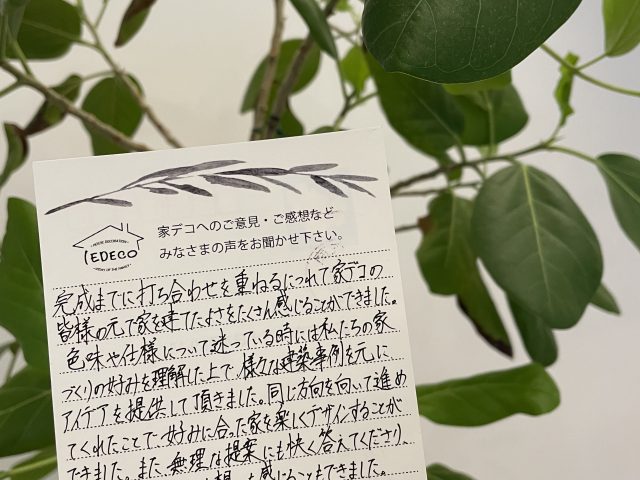 家デコへのご意見・ご感想など
みなさまの声をお聞かせ下さい。
HOUSE DECORATION
IEDECO
完成までに打ち合わせを重ねるにつれて家デコの
皆様の元で家を建てたよさをたくさん感じることができました。
色味や仕様について迷っている時には私たちの家
づくりの好みを理解した上で様々な建築事例を元に
アイデアを提供して頂きました。同じ方向を向いて進め
てくれたことで好みに合った家を楽しくデザインすることが
できました。また、無理な提案にも快く答えてくださり、
を感じることもできました。